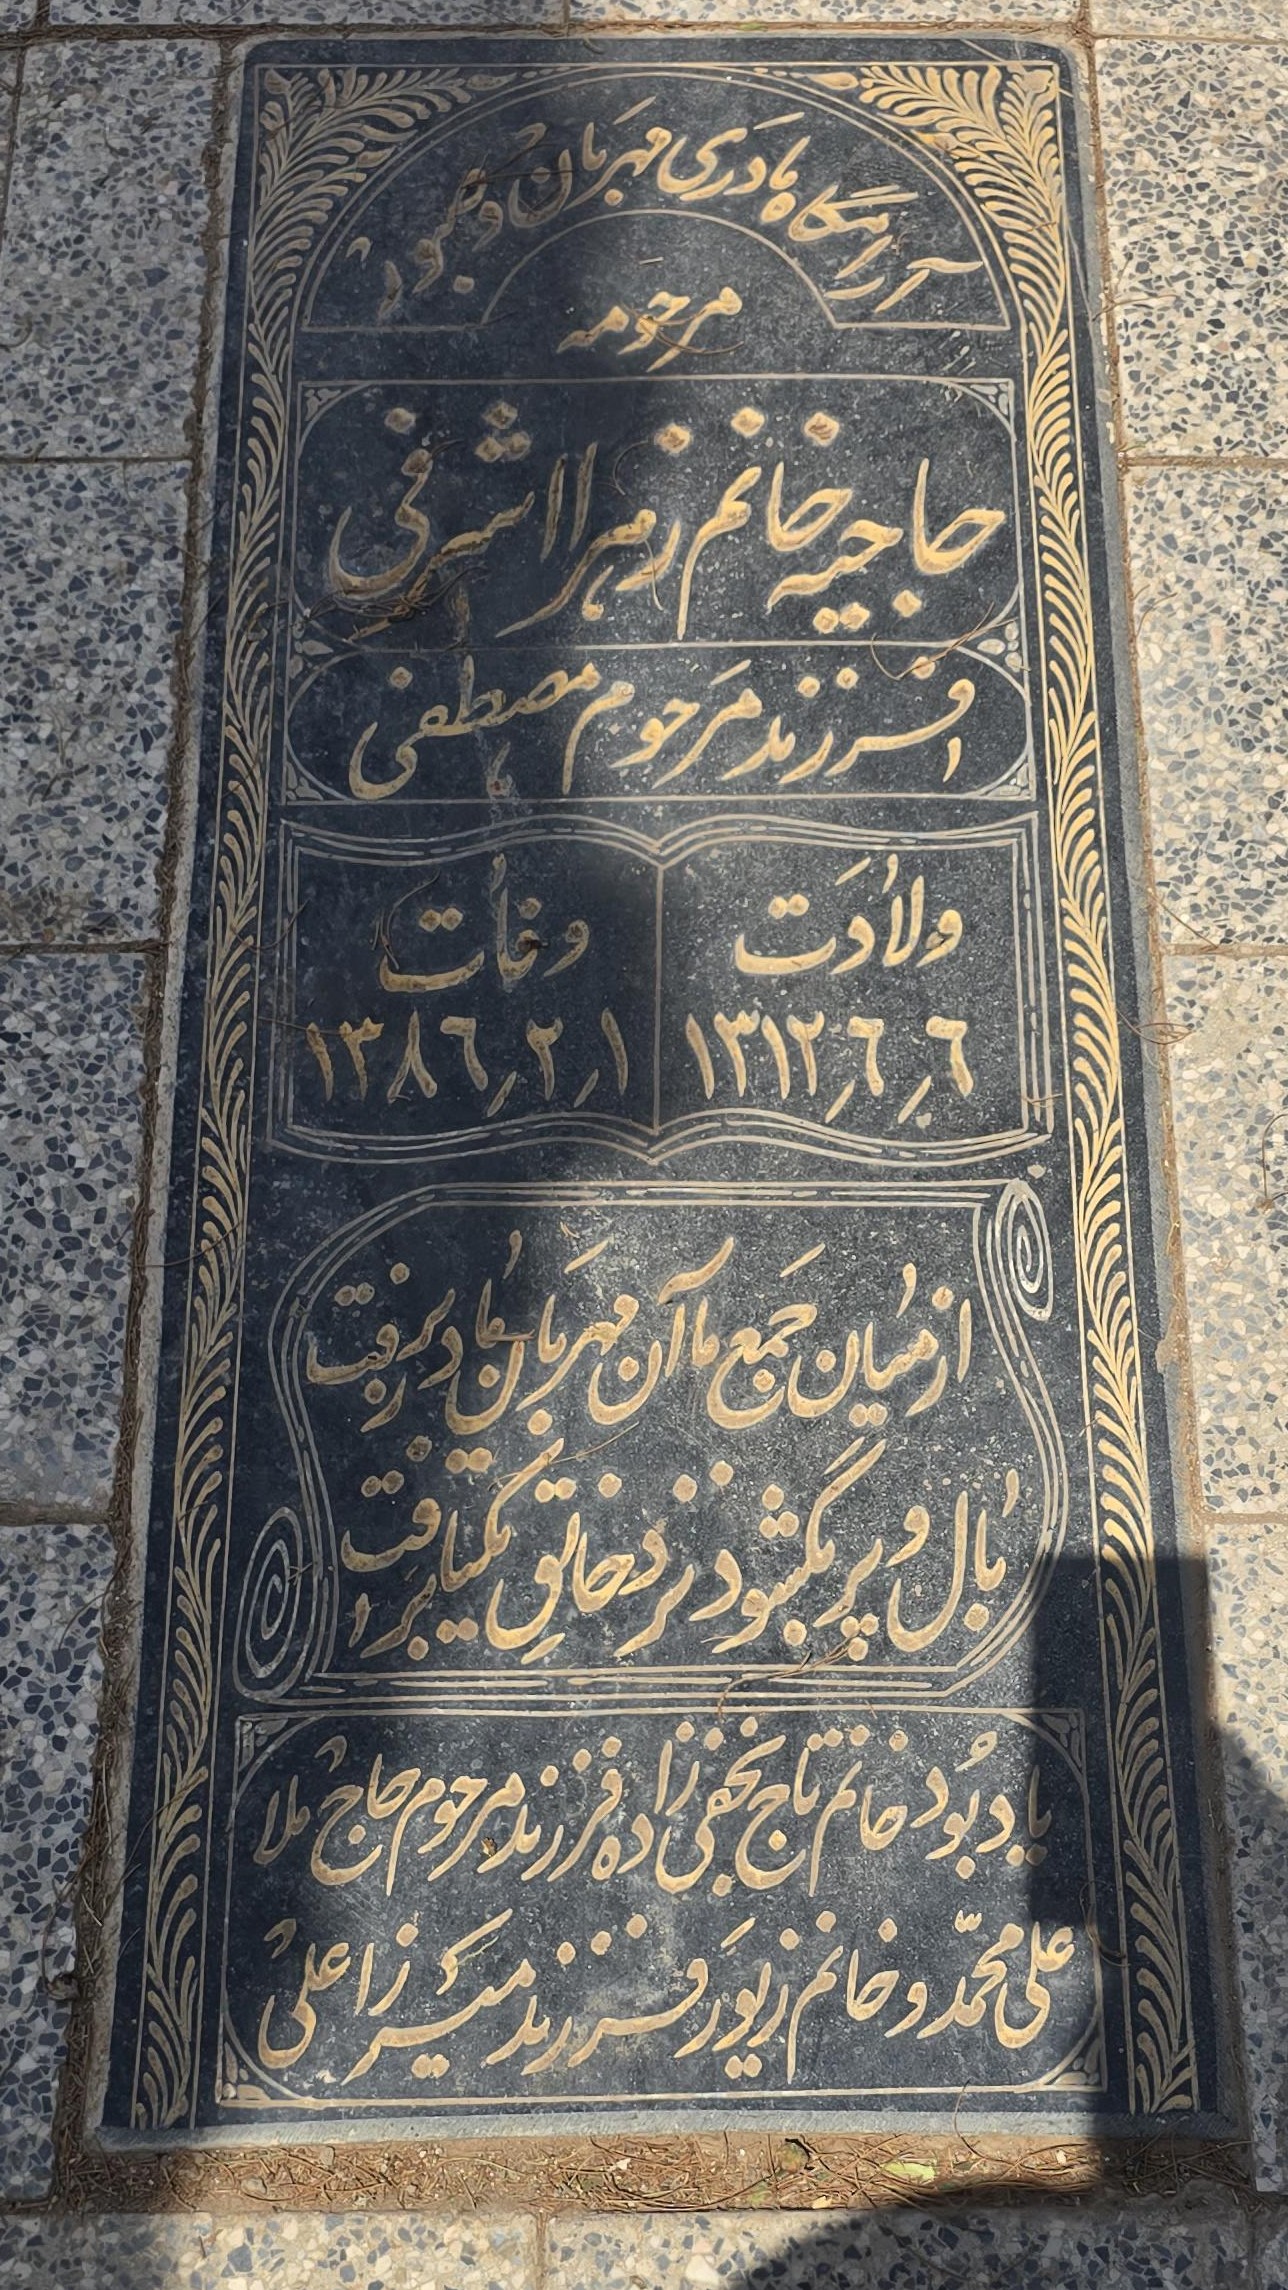 آرامگاه مادری مهربان و دلسوز
مرحومه
حاجیه خانم زهرا اشرفی
فرزند مرحوم مصطفی
ولادت
۱۳۱۲٫۶٫۶
وفات
۱۳۸۶٫۲٫۱
از میان جمع ما آن مهربان مادر برفت
بال و پر بگشود نزد خالق یکتا برفت
یادبود خانم تاج نجفی زاده فرزند مرحوم حاج ملا
علی محمد و خانم زیور فرزند میرزا علی